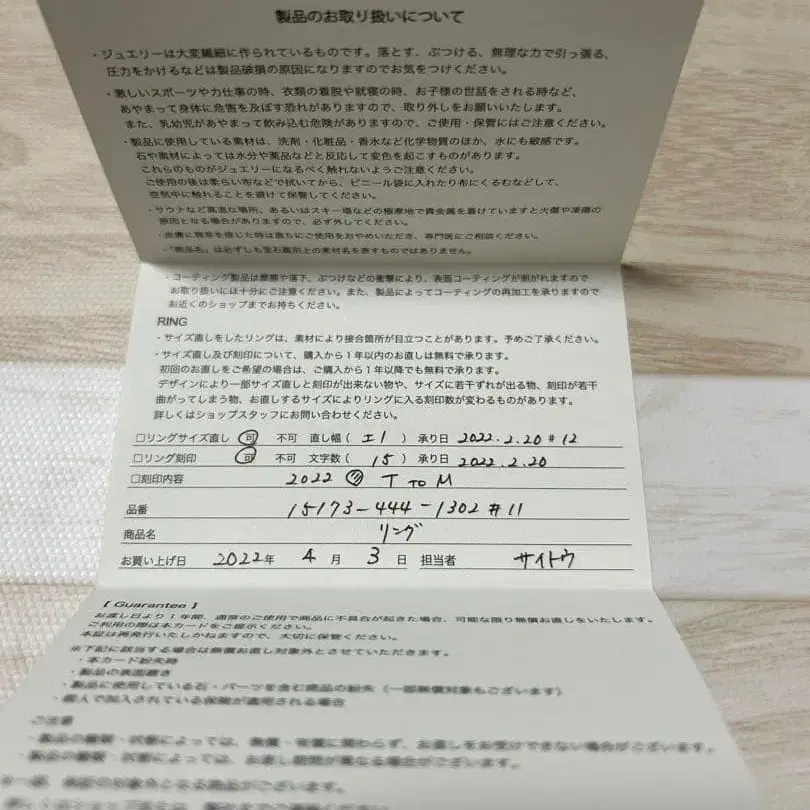 製品のお取り扱いについて
・ジュエリーは大変繊細に作られているものです。落とす、ぶつける、無理な力で引っ張る、
圧力をかけるなどは製品破損の原因になりますのでお気をつけください。
・激しいスポーツや力仕事の時、衣類の着脱や就寝の時、お子様の世話をされる時など、
あやまって身体に危害を及ぼす恐れがありますので、取り外しをお願いいたします。
また、乳幼児があやまって飲み込む危険がありますので、ご使用・保管にはご注意ください。
・製品に使用している素材は、洗剤・化粧品・香水など化学物質のほか、水にも敏感です。
石や素材によっては水分や薬品などと反応して変色を起こすものがあります。
これらのものがジュエリーになるべく触れないようご注意ください。
ご使用の後は柔らかい布などで拭いてから、ビニール袋に入れたり布にくるむなどして、
空気中に触れることを避けて保管してください。
・サウナなど高温な場所、あるいはスキー場などの極寒地で貴金属を着けていますと火傷や凍傷の
原因となる場合がありますので、必ず外してください。
・皮膚に異常を感じた時は直ちにご使用をおやめいただき、専門医にご相談ください。
・「商品名」は必ずしも宝石鑑別上の素材名を表すものではありません。
・コーティング製品は摩擦や落下、ぶつけなどの衝撃により、表面コーティングが剥がれますので
お取り扱いには十分にご注意ください。また、製品によってコーティングの再加工を承りますので
お近くのショップまでお持ちください。
RING
・サイズ直しをしたリングは、素材により接合箇所が目立つことがあります。予めご了承ください。
・サイズ直し及び刻印について、購入から1年以内のお直しは無料で承ります。
初回のお直しをご希望の場合は、ご購入から1年以降でも無料で承ります。
デザインにより一部サイズ直しと刻印が出来ない物や、サイズに若干ずれが出る物、刻印が若干
曲がってしまう物、お直しするサイズによりリングに入る刻印数が変わるものがあります。
詳しくはショップスタッフにお問い合わせください。
□リングサイズ直し 可 不可 直し幅( ±1 ) 承り日 2022.2.20 #12
□リング刻印 可 不可 文字数( 15 ) 承り日 2022.2.20
□刻印内容 2022 T TO M
品番 15173-444-1302 #11
商品名 リング
お買い上げ日 2022年 4月 3日 担当者 サイトウ
【 Guarantee 】
お渡し日より1年間、通常のご使用で商品に不具合が起きた場合、可能な限り無償お直しをいたします。
ご利用の際は本カードをご提示ください。
本証は再発行いたしかねますので、大切に保管ください。
※下記に該当する場合は無償お直し対象外とさせていただきます。
・本カード紛失時
・製品の表面磨き
・製品に使用している石・パーツを含む商品の紛失(一部無償対象もございます)
・個人で加入されている保険が適用される場合
ご注意
・製品の種類・状態によっては、無償・有償に関わらず、お直しをお受けできない場合がございます。
・製品の種類・状態によっては、お直し期間が異なる場合がございます。